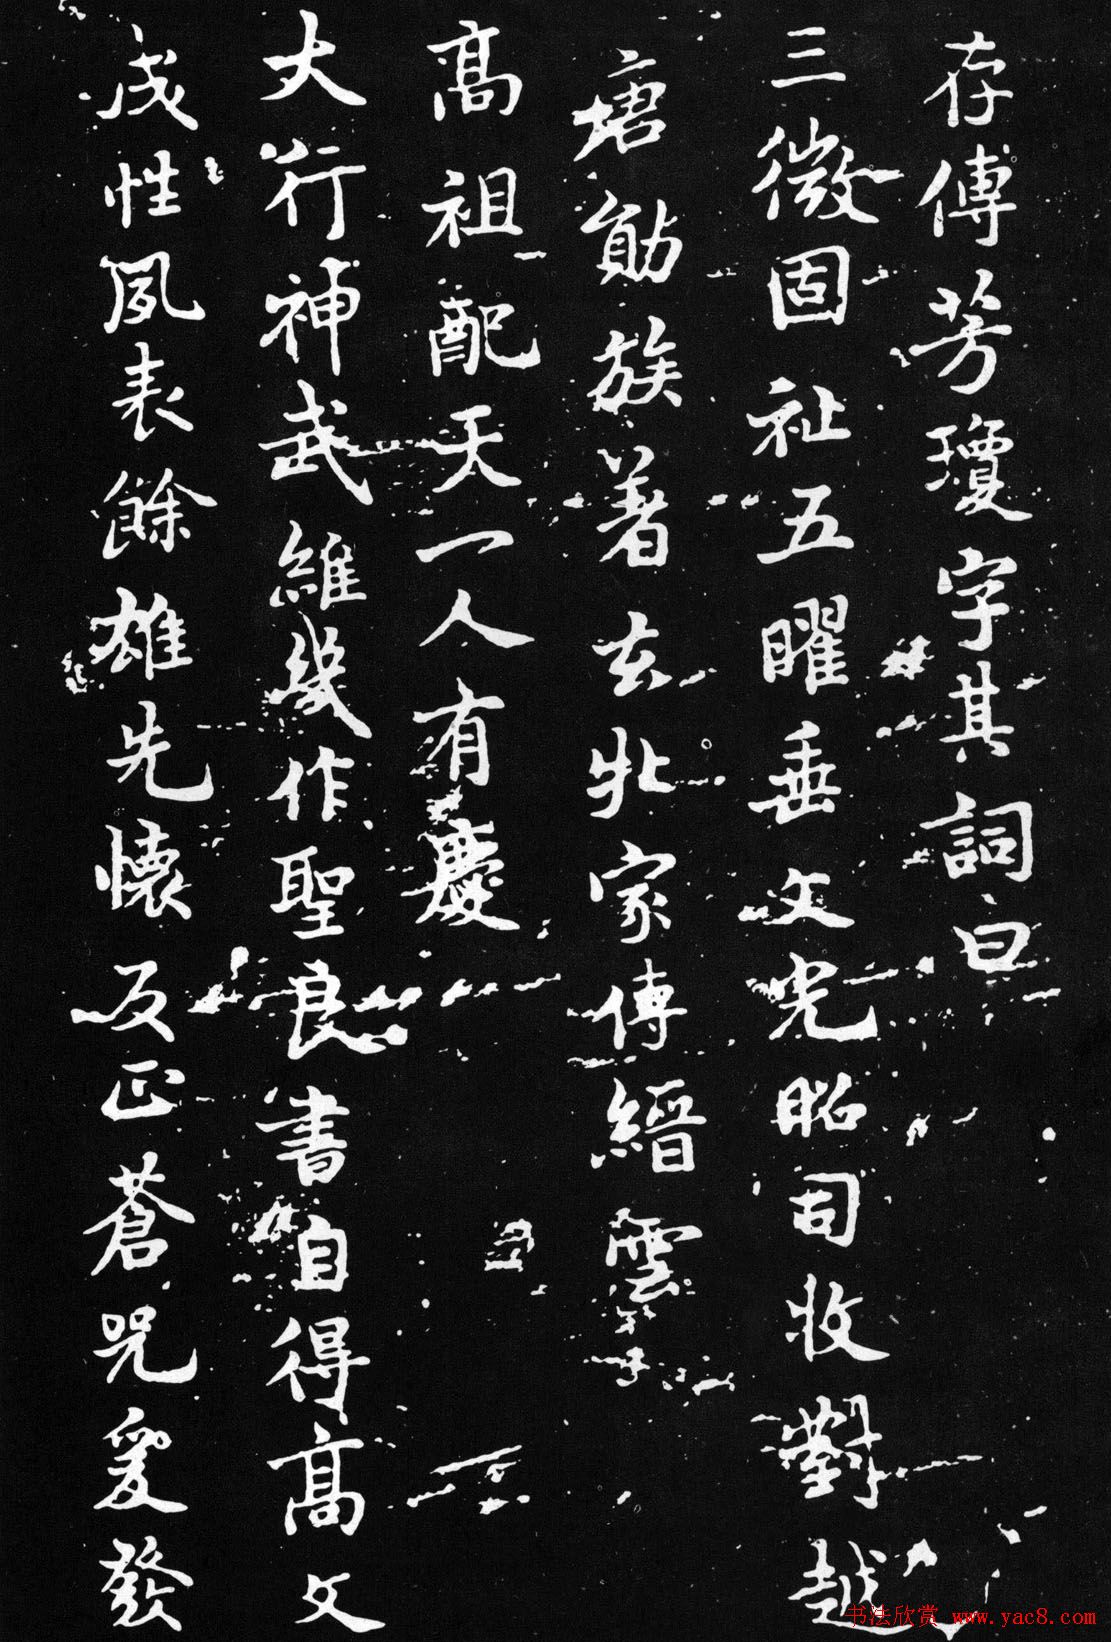 存傳芳瓊字其詞曰
三微固祉五曜垂文光昭司牧對越
唐勛族著玄牝家傳縉雲
高祖配天一人有慶
大行神武維幾作聖良書自得高文
成性夙表餘雄先懷反正蒼咒爰發
书法欣赏 www.yac8.com